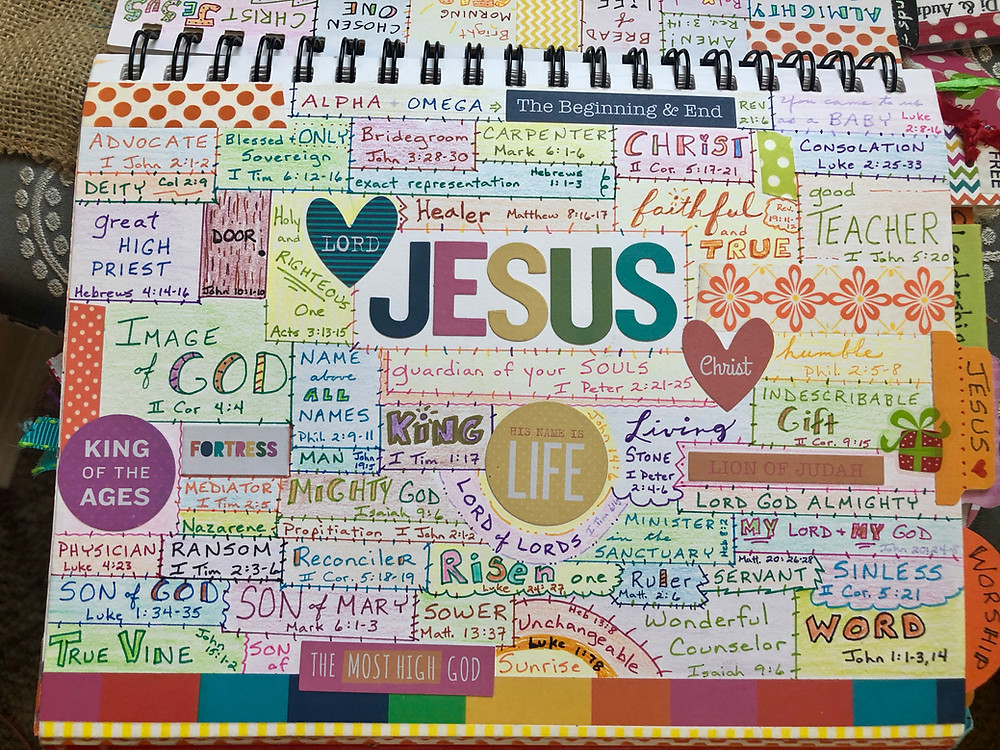 CHRIST
JESUS
CHOSEN
ONE
Bright
MORNING
BREAD
of
LIFE
Rev 3:14
AMEN!
ALMIGHTY
ALPHA + OMEGA → The Beginning & End REV 21:6
You came to us
as a BABY Luke 2:8-16
ADVOCATE
I John 2:1-2
Blessed + ONLY
Sovereign
I Tim 6:12-16
Bridegroom
John 3:28-30
CARPENTER
Mark 6:1-6
CHRIST
II Cor. 5:17-21
CONSOLATION
Luke 2:25-33
DEITY Col 2:9
exact representation Hebrews 1:1-3
great
HIGH
PRIEST
Hebrews 4:14-16
DOOR
John 10:1-10
Holy
and
RIGHTEOUS
One
Acts 3:13-15
LORD
Healer Matthew 8:16-17
faithful
and
TRUE
Rev. 19:11-12
good
TEACHER
I John 5:20
JESUS
IMAGE
of GOD
II Cor 4:4
NAME
above
ALL
NAMES
Phil 2:9-11
guardian of your SOULS
I Peter 2:21-25
Christ
humble
Phil 2:5-8
INDESCRIBABLE
Gift
II Cor. 9:15
KING
OF THE
AGES
FORTRESS
MAN John 19:5
KING
I Tim 1:17
HIS NAME IS
LIFE
Living
STONE
I Peter
2:4-6
LION OF JUDAH
MEDIATOR
I Tim 2:5
MIGHTY GOD
Isaiah 9:6
LORD
of LORDS
LORD GOD ALMIGHTY
Nazarene
Propitiation I John 2:1-2
MINISTER
in the
SANCTUARY Heb 8:2
MY LORD + MY GOD
PHYSICIAN
Luke 4:23
RANSOM
I Tim 2:3-6
Reconciler
II Cor. 5:18-19
Risen one
Luke 24:27
Ruler
Matt. 2:6
Matt. 20:26-28
SERVANT
SINLESS
II Cor. 5:21
SON of GOD
Luke 1:34-35
SON of MARY
Mark 6:1-3
SOWER
Matt. 13:37
Unchangeable
Heb 13:8
Luke 1:78
Sunrise
Wonderful
Counselor
Isaiah 9:6
WORD
John 1:1-3, 14
TRUE VINE
SON
of
THE MOST HIGH GOD
JESUS
WORSHIP